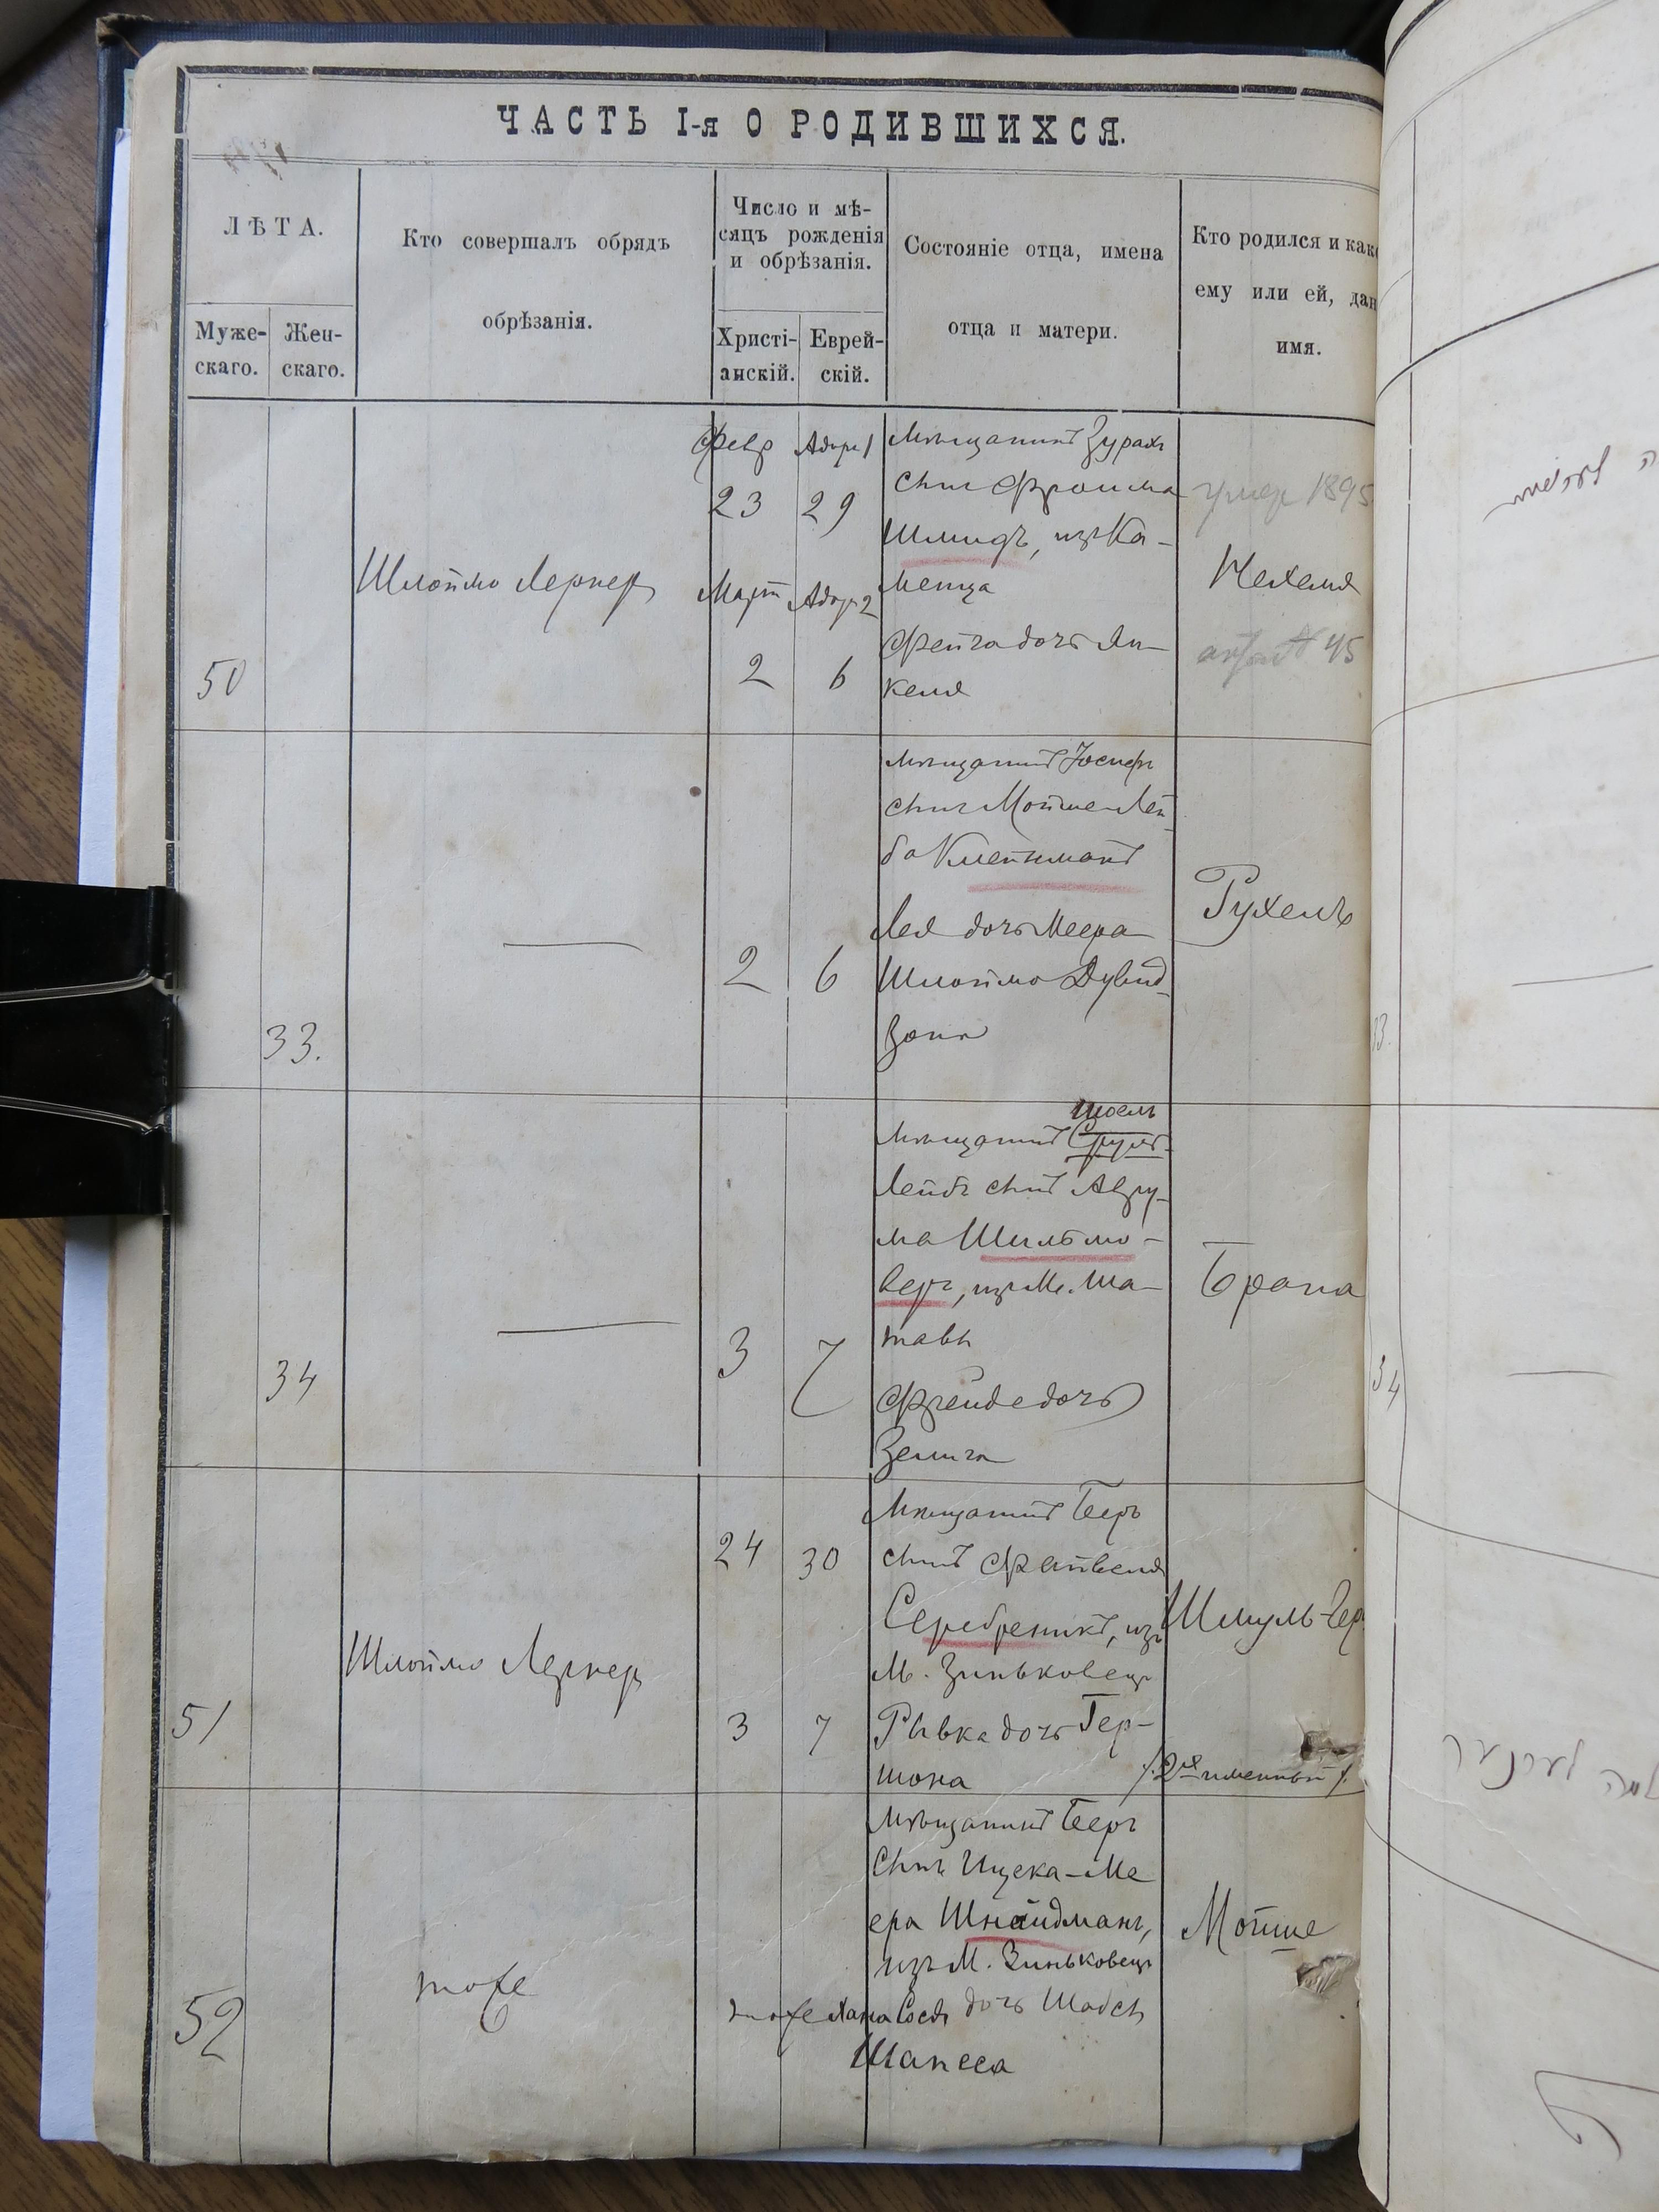 ЧАСТЬ I-я О РОДИВШИХСЯ.
ЛѢТА.
Муже-
скаго.
Жен-
скаго.
Кто совершалъ обрядъ
обрѣзанія.
Число и мѣ-
сяцъ рожденія
и обрѣзанія.
Христі-
анскій.
Еврей-
скій.
Состояніе отца, имена
отца и матери.
Кто родился и како
ему или ей, дан
имя.
50
Шлоймо Лернер
Февр
23
Март
2
Адара 1
29
Адара 2
6
Мѣщанинъ Зурахъ
сынъ Фроима
Шмидъ, изъ Ка-
менца
Фейга дочь Ян-
келя
умер 1895
Нехемя
45
33.
2
6
Мѣщанинъ Іосифъ
сынъ Мойше-Лей-
ба Клейнманъ
Лея дочь Меера
Шлоймо Дувид-
зона
Рухель
33.
34
3
7
Шоель
Мѣщанинъ Сруль-
Лейбъ сынъ Авру-
ма Шильмо-
веръ, изъ М. Ша-
тавы
Фрейде дочь
Зелига
Брана
34
51
Шлоймо Лернеръ
24
3
30
7
Мѣщанинъ Беръ
сынъ Файвеля
Серебреникъ, изъ
М. Зиньковецъ
Рывка дочь Гер-
шона
Шмуль-Гер
/:2хъ именный:/
52
тоже
тоже
Мѣщанинъ Беръ
сынъ Ицека-Ме
ера Шнайдманъ,
изъ М. Зиньковецъ
Хана Сося дочь Шабсы
Шапсса
Мойше